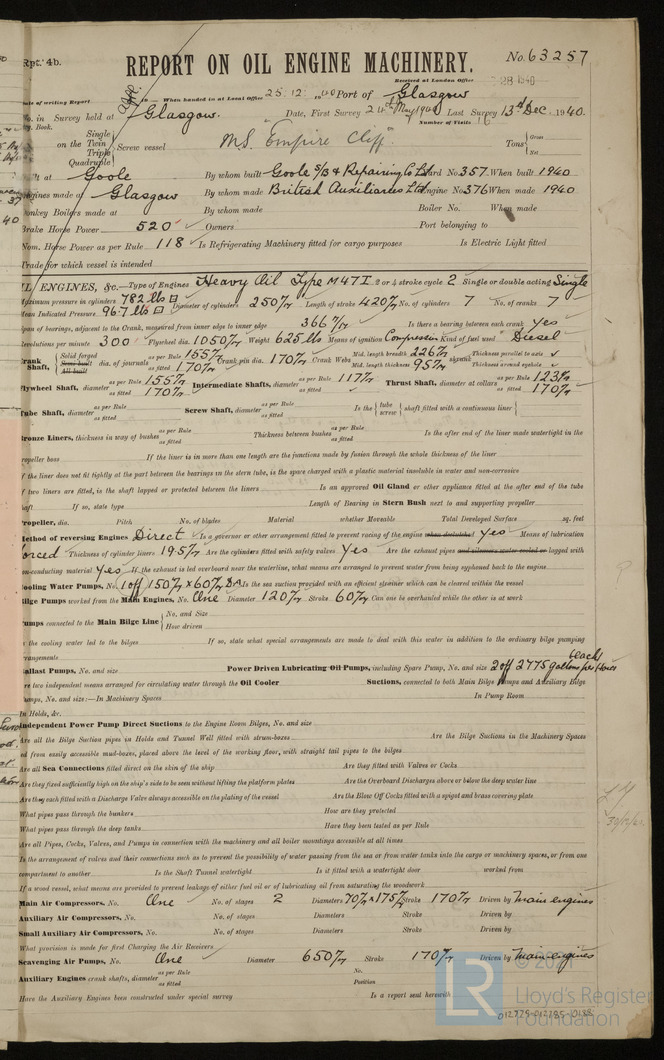 Rpt. 4b.
REPORT ON OIL ENGINE MACHINERY.
No. 63257
Received at London Office
28 1940
Date of writing Report
When handed in at Local Office 25.12.1940 Port of Glasgow
No. in Survey held at Glasgow. Date, First Survey 2 May 1940 Last Survey 13th Dec. 1940.
Reg. Book. Number of Visits
Single
on the Twin
Triple
Quadruple
Screw vessel M.S. "Empire Cliff". Tons Gross
Net
Built at Goole By whom built Goole S/B & Repairing Co Ltd Yard No. 357. When built 1940
Engines made at Glasgow By whom made British Auxiliaries Ltd Engine No. 376 When made 1940
Donkey Boilers made at By whom made Boiler No. When made
Brake Horse Power 520 Owners Port belonging to
Nom. Horse Power as per Rule 118 Is Refrigerating Machinery fitted for cargo purposes Is Electric Light fitted
Trade for which vessel is intended
OIL ENGINES, &c.—Type of Engines Heavy Oil Type M47I 2 or 4 stroke cycle 2 Single or double acting Single
Maximum pressure in cylinders 782 lbs Diameter of cylinders 250 m/m Length of stroke 420 m/m No. of cylinders 7 No. of cranks 7
Mean Indicated Pressure 96.7 lbs
Span of bearings, adjacent to the Crank, measured from inner edge to inner edge 366 m/m Is there a bearing between each crank Yes
Revolutions per minute 300 Flywheel dia. 1050 m/m Weight 625 lbs Means of ignition Compression Kind of fuel used Diesel
Crank Shaft, Solid forged Semi-built All built dia. of journals as per Rule 155 m/m as fitted 170 m/m Crank pin dia. 170 m/m Crank Webs Mid. length breadth 226 m/m Mid. length thickness 95 m/m shrunk Thickness parallel to axis Thickness around eyehole
Flywheel Shaft, diameter as per Rule 155 m/m as fitted 170 m/m Intermediate Shafts, diameter as per Rule 117 m/m as fitted Thrust Shaft, diameter at collars as per Rule 123 m/m as fitted 170 m/m
Tube Shaft, diameter as per Rule as fitted Screw Shaft, diameter as per Rule as fitted Is the tube screw shaft fitted with a continuous liner
Bronze Liners, thickness in way of bushes as per Rule as fitted Thickness between bushes as per Rule as fitted Is the after end of the liner made watertight in the
propeller boss If the liner is in more than one length are the junctions made by fusion through the whole thickness of the liner
If the liner does not fit tightly at the part between the bearings in the stern tube, is the space charged with a plastic material insoluble in water and non-corrosive
If two liners are fitted, is the shaft lapped or protected between the liners Is an approved Oil Gland or other appliance fitted at the after end of the tube
shaft If so, state type Length of Bearing in Stern Bush next to and supporting propeller
Propeller, dia. Pitch No. of blades Material whether Moveable Total Developed Surface sq. feet
Method of reversing Engines Direct Is a governor or other arrangement fitted to prevent racing of the engine when declutched Yes Means of lubrication
Forced Thickness of cylinder liners 19.5 m/m Are the cylinders fitted with safety valves Yes Are the exhaust pipes and silencers water cooled or lagged with
non-conducting material Yes If the exhaust is led overboard near the waterline, what means are arranged to prevent water from being syphoned back to the engine
Cooling Water Pumps, No. 1 off 150 m/m x 60 m/m D.A. Is the sea suction provided with an efficient strainer which can be cleared within the vessel
Bilge Pumps worked from the Main Engines, No. One Diameter 120 m/m Stroke 60 m/m Can one be overhauled while the other is at work
Pumps connected to the Main Bilge Line No. and Size
How driven
Is the cooling water led to the bilges If so, state what special arrangements are made to deal with this water in addition to the ordinary bilge pumping
arrangements
Ballast Pumps, No. and size Power Driven Lubricating Oil Pumps, including Spare Pump, No. and size 2 off 2775 gallons per hour each
Are two independent means arranged for circulating water through the Oil Cooler Suctions, connected to both Main Bilge Pumps and Auxiliary Bilge
Pumps, No. and size:—In Machinery Spaces In Pump Room
In Holds, &c.
Independent Power Pump Direct Suctions to the Engine Room Bilges, No. and size
Are all the Bilge Suction pipes in Holds and Tunnel Well fitted with strum-boxes Are the Bilge Suctions in the Machinery Spaces
led from easily accessible mud-boxes, placed above the level of the working floor, with straight tail pipes to the bilges
Are all Sea Connections fitted direct on the skin of the ship Are they fitted with Valves or Cocks
Are they fixed sufficiently high on the ship's side to be seen without lifting the platform plates Are the Overboard Discharges above or below the deep water line
Are they each fitted with a Discharge Valve always accessible on the plating of the vessel Are the Blow Off Cocks fitted with a spigot and brass covering plate
What pipes pass through the bunkers How are they protected
What pipes pass through the deep tanks Have they been tested as per Rule
Are all Pipes, Cocks, Valves, and Pumps in connection with the machinery and all boiler mountings accessible at all times
Is the arrangement of valves and their connections such as to prevent the possibility of water passing from the sea or from water tanks into the cargo or machinery spaces, or from one
compartment to another Is the Shaft Tunnel watertight Is it fitted with a watertight door worked from
If a wood vessel, what means are provided to prevent leakage of either fuel oil or of lubricating oil from saturating the woodwork
Main Air Compressors, No. One No. of stages 2 Diameters 70 m/m x 175 m/m Stroke 170 m/m Driven by Main engines
Auxiliary Air Compressors, No. No. of stages Diameters Stroke Driven by
Small Auxiliary Air Compressors, No. No. of stages Diameters Stroke Driven by
What provision is made for first Charging the Air Receivers
Scavenging Air Pumps, No. One Diameter 650 m/m Stroke 170 m/m Driven by Main engines
Auxiliary Engines crank shafts, diameter as per Rule as fitted No. Position
Have the Auxiliary Engines been constructed under special survey Is a report sent herewith
LR
© 2021
Lloyd's Register
Foundation
012779-012785-0188